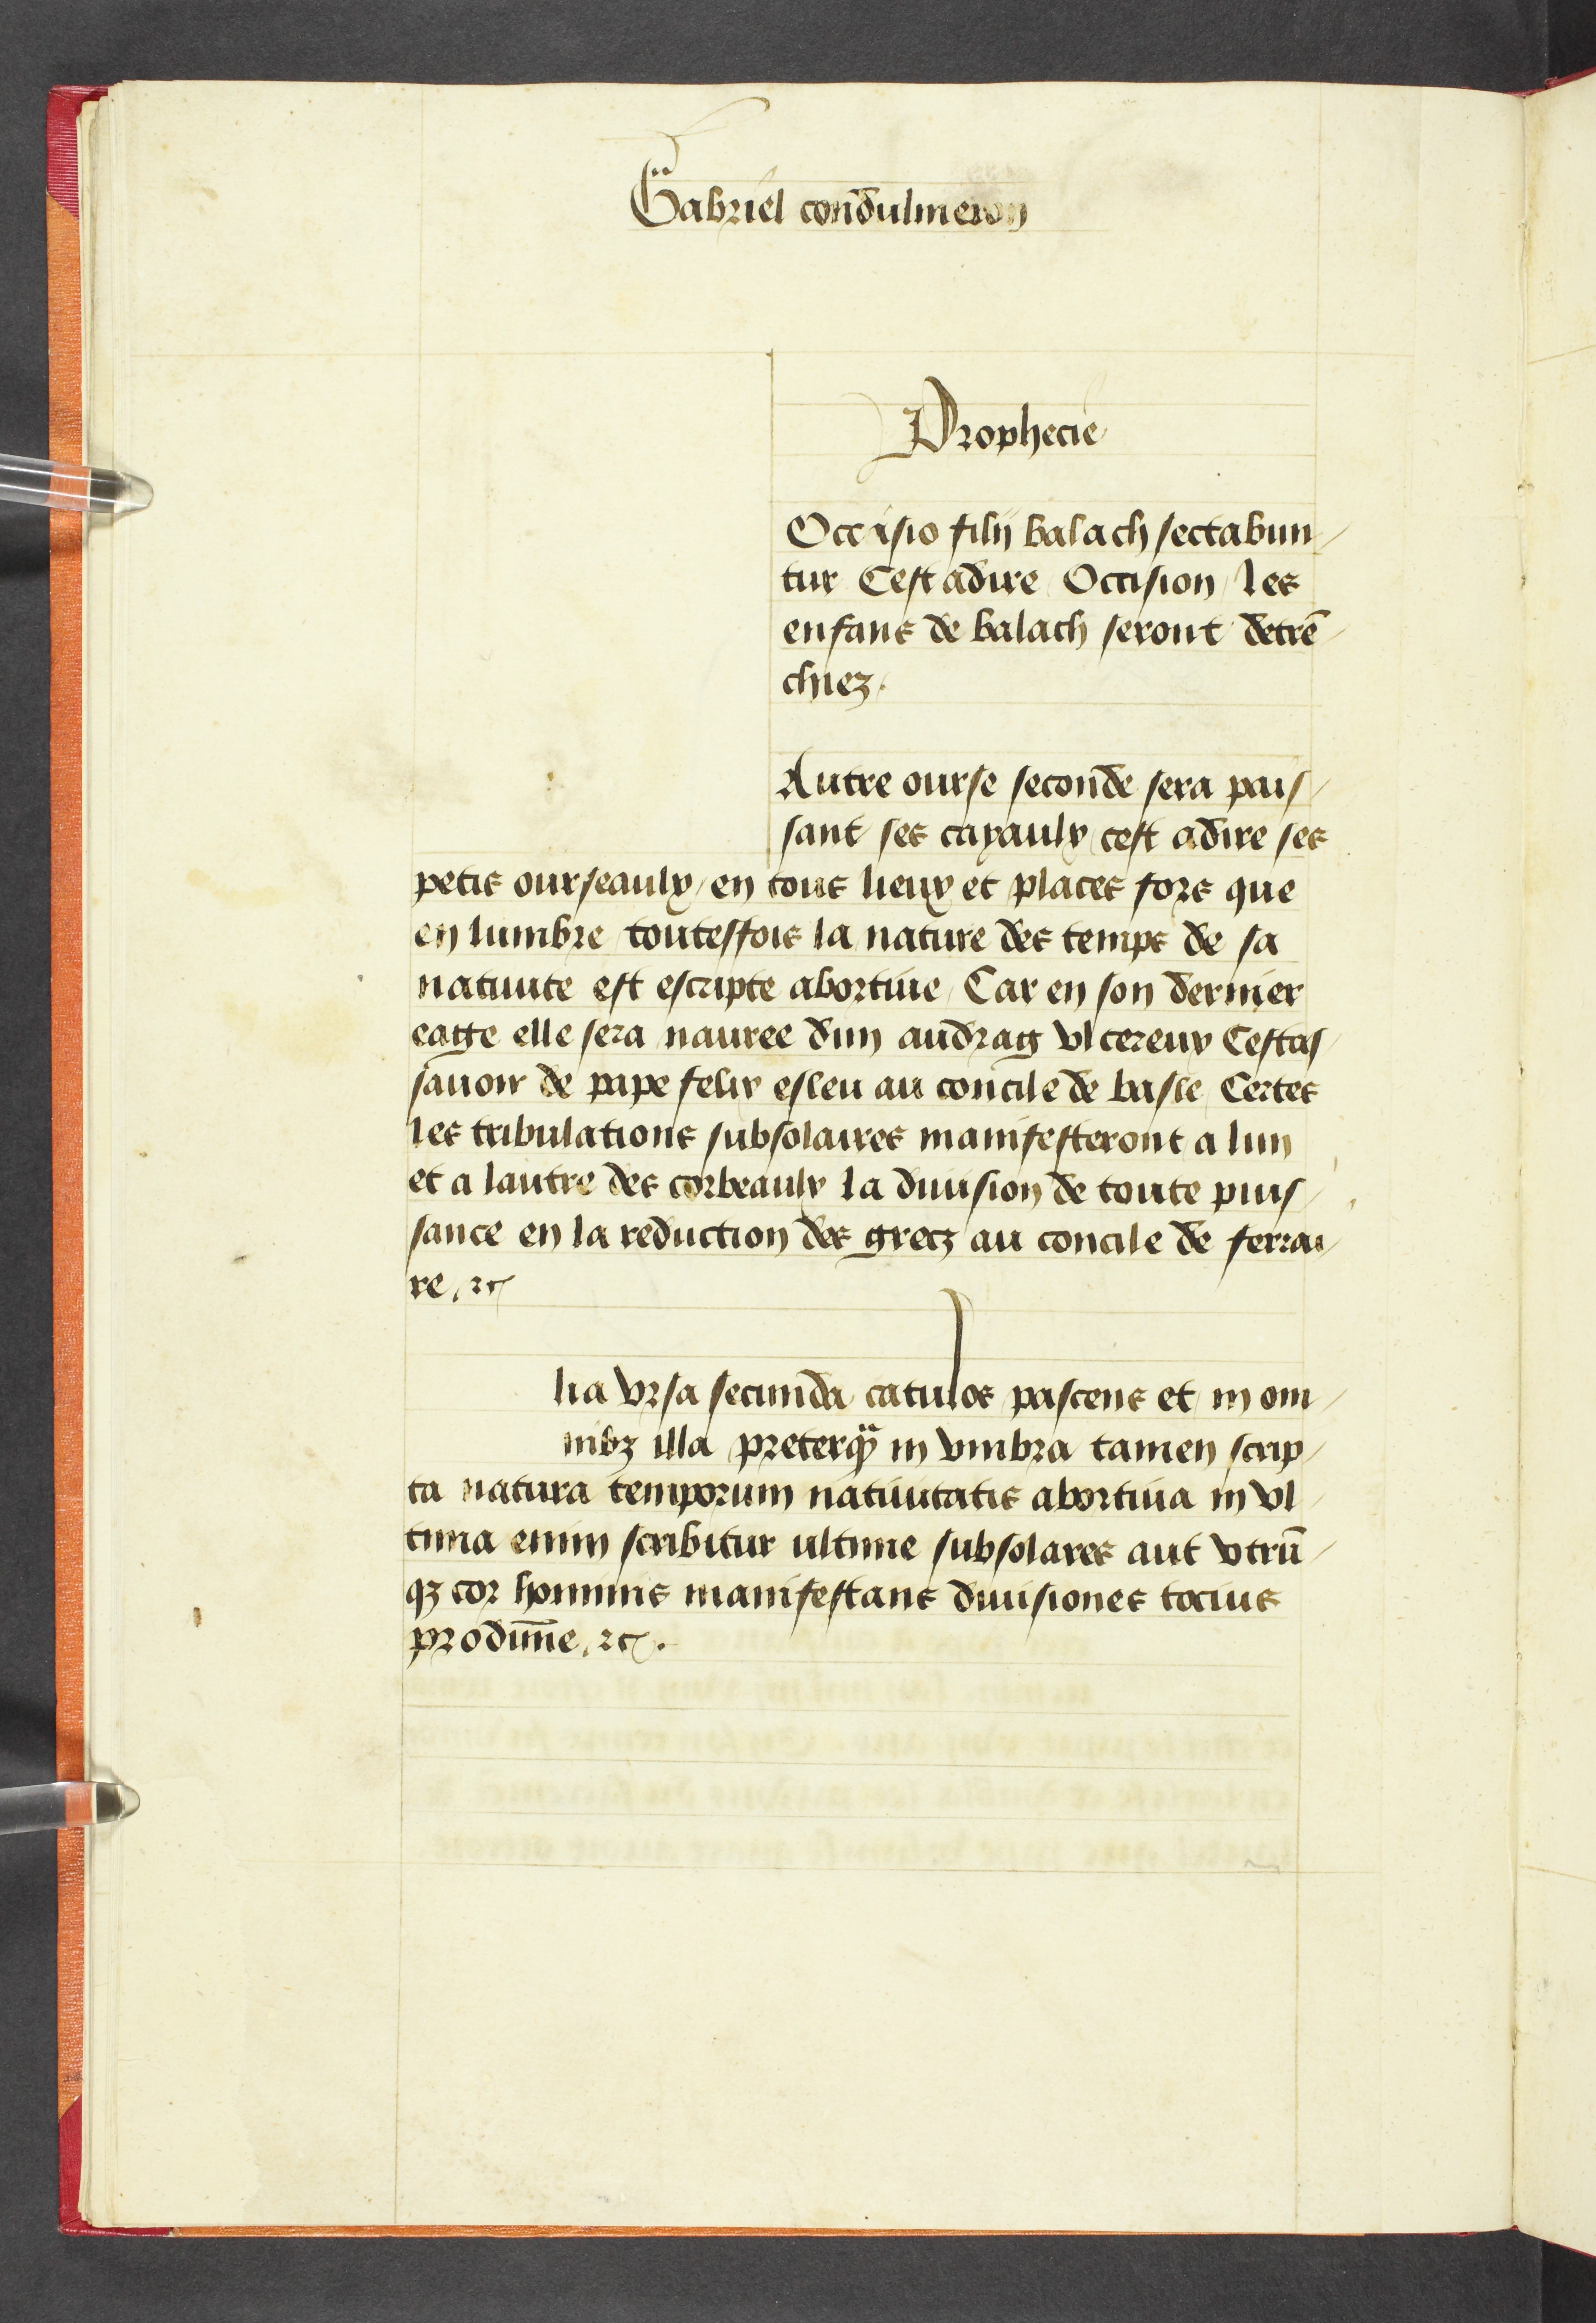 Gabriel condulmeron
Prophecie
Occisio filij balach sectabun/
tur Cest adire Occision / les
enfans de balach seront detrē/
chiez.
Autre ourse seconde sera pais/
sant ses cayaulx cest adire ses
petis ourseaulx / en tous lieux et places fors que
en lumbre toutesfois la nature des temps de sa
natiuite est escripte abortiue / Car en son dernier
eage elle sera nauree dun audrag vlcereux Cestas/
sauoir de pape felix esleu au concile de basle / Certes
les tribulations subsolaires manifesteront a lun
et a lautre des corbeaulx la diuision de toute puis/
sance en la reduction des grecz au concile de ferrai/
re, ⁊c
lia vrsa secunda catulos pascens et in om/
nibz illa preterq̃ in vmbra tamen scrip/
ta natura temporum natiuitatis abortiua in vl/
tima enim scribitur ultime subsolares aut vtrū/
qz cor hominis manifestans diuisiones tocius
 ⁊c.